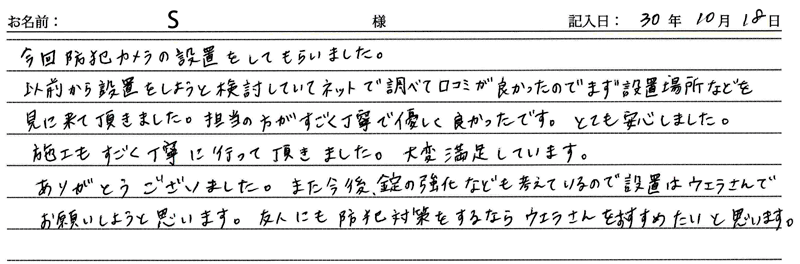 お名前： S 様 記入日： 30 年 10 月 18 日
今回防犯カメラの設置をしてもらいました。
以前から設置をしようと検討していてネットで調べて口コミが良かったのでまず設置場所などを
見に来て頂きました。担当の方がすごく丁寧で優しく良かったです。とても安心しました。
施工もすごく丁寧に行って頂きました。大変満足しています。
ありがとうございました。また今後、錠の強化なども考えているので設置はウエラさんで
お願いしようと思います。友人にも防犯対策をするならウエラさんをおすすめたいと思います。